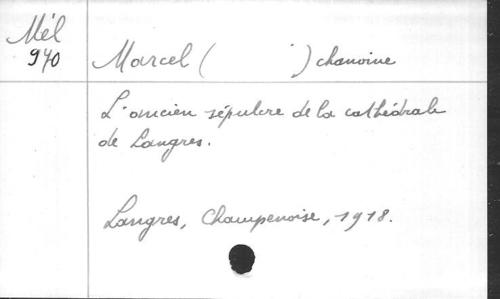 Mél
940
Marcel ( ) chanoine
L'ancien sépulcre de la cathédrale
de Langres.
Langres, Champenoise, 1918.